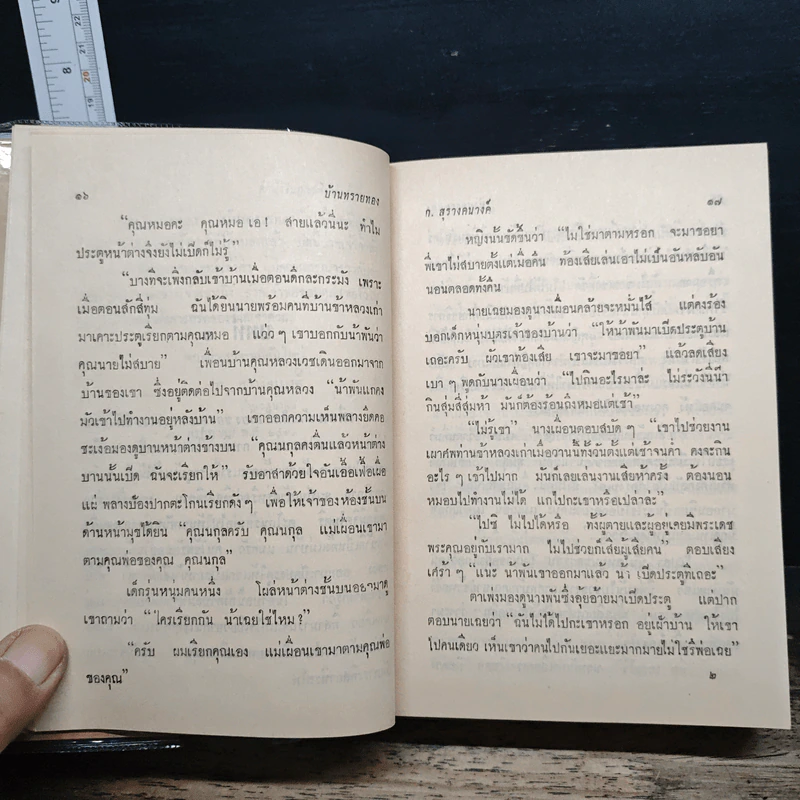 ๑๖
บ้านทรายทอง
“คุณหมอคะ คุณหมอ เอ! สายแล้วนี่นะ ทำไม
ประตูหน้าต่างจึงยังไม่เปิดก็ไม่รู้”
“บางทีจะเพิ่งกลับเข้าบ้านเมื่อตอนดึกละกระมัง เพราะ
เมื่อตอนสักสี่ทุ่ม ฉันได้ยินนายพร้อมคนที่บ้านข้าหลวงเก่า
มาเคาะประตูเรียกตามคุณหมอ แว่ว ๆ เขาบอกกับน้าพันว่า
คุณนายไม่สบาย” เพื่อนบ้านคุณหลวงเวชเดินออกมาจาก
บ้านของเขา ซึ่งอยู่ติดต่อไปจากบ้านคุณหลวง “น้าพันแกคง
มัวเข้าไปทำงานอยู่หลังบ้าน” เขาออกความเห็นพลางยืดคอ
ชะเง้อมองดูบานหน้าต่างข้างบน “คุณนกุลคงตื่นแล้วหน้าต่าง
บานนั้นเปิด ฉันจะเรียกให้” รับอาสาด้วยใจอันเอื้อเฟื้อเผื่อ
แผ่ พลางป้องปากตะโกนเรียกดัง ๆ เพื่อให้เจ้าของห้องชั้นบน
ด้านหน้ามุขได้ยิน “คุณนกุลครับ คุณนกุล แม่เผื่อนเขามา
ตามคุณพ่อของคุณ คุณนกุล”
เด็กรุ่นหนุ่มคนหนึ่ง โผล่หน้าต่างชั้นบนออกมาดู
เขาถามว่า “ใครเรียกกัน น้าเฉยใช่ไหม?”
“ครับ ผมเรียกคุณเอง แม่เผื่อนเขามาตามคุณพ่อ
ของคุณ”
ก. สุรางคนางค์
๑๗
หญิงนั้นซัดขึ้นว่า “ไม่ใช่มาตามหรอก จะมาขอยา
พี่เขาไม่สบายตั้งแต่เมื่อคืน ท้องเสียเล่นเอาไม่เป็นอันหลับอัน
นอนตลอดทั้งคืน
นายเฉยมองดูนางเผื่อนคล้ายจะหมั่นไส้ แต่คงร้อง
บอกเด็กหนุ่มบุตรเจ้าของบ้านว่า “ให้น้าพันมาเปิดประตูบ้าน
เถอะครับ ผัวเขาท้องเสีย เขาจะมาขอยา” แล้วลดเสียง
เบา ๆ พูดกับนางเผื่อนว่า “ไปกินอะไรมาล่ะ ไม่ระวังนี่นี
กินสุ่มสี่สุ่มห้า มันก็ต้องร้อนถึงหมอแต่เช้า”
“ไม่รู้เขา” นางเผื่อนตอบสบัด ๆ “เขาไปช่วยงาน
เผาศพท่านข้าหลวงเก่าเมื่อวานนี้ทั้งวันตั้งแต่เช้าจนค่ำ คงจะกิน
อะไร ๆ เข้าไปมาก มันก็เลยเล่นงานเสียห้าครั้ง ต้องนอน
หมอบไปทำงานไม่ได้ แกไปกะเขาหรือเปล่าล่ะ”
“ไปซิ ไม่ไปได้หรือ ทั้งผู้ตายและผู้อยู่เคยมีพระเดช
พระคุณอยู่กับเรามาก ไม่ไปช่วยก็เสียผู้เสียคน” ตอบเสียง
เศร้า ๆ “แน่ะ น้าพันเขาออกมาแล้ว น้า เปิดประตูทีเถอะ”
ตาเพ่งมองดูนางพันซึ่งอุ้ยอ้ายมาเปิดประตู แต่ปาก
ตอบนายเฉยว่า “ฉันไม่ได้ไปกะเขาหรอก อยู่เฝ้าบ้าน ให้เขา
ไปคนเดียว เห็นเขาว่าคนไปกันเยอะแยะมากมายไม่ใช่รึพ่อเฉย”
๒